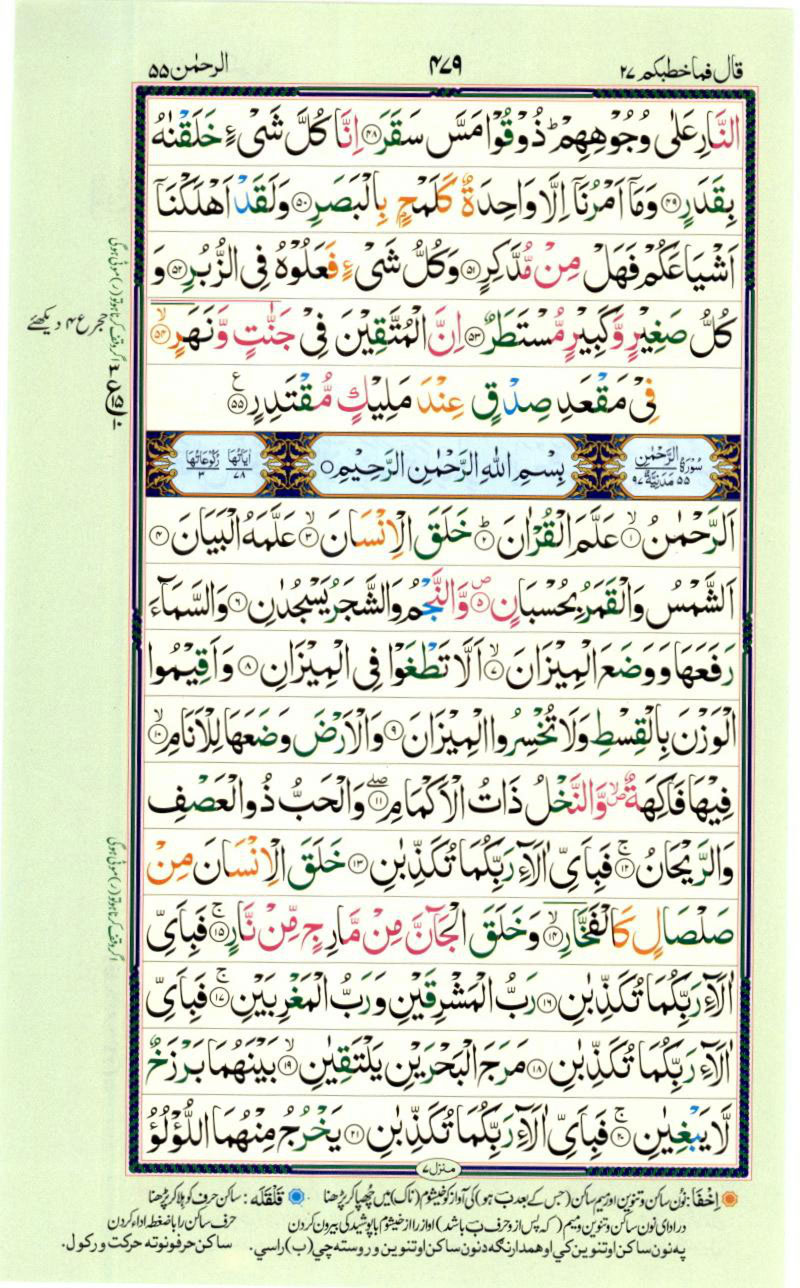 قال فما خطبكم ۲۷
۴۷۹
الرحمٰن ۵۵
النَّارِ عَلٰى وُجُوْهِهِمْ ؕ ذُوْقُوْا مَسَّ سَقَرَ ﴿۴۸﴾ اِنَّا كُلَّ شَىْءٍ خَلَقْنٰهُ
بِقَدَرٍ ﴿۴۹﴾ وَمَاۤ اَمْرُنَاۤ اِلَّا وَاحِدَةٌ كَلَمْحٍۭ بِالْبَصَرِ ﴿۵۰﴾ وَلَقَدْ اَهْلَكْنَاۤ
اَشْيَاعَكُمْ فَهَلْ مِنْ مُّدَّكِرٍ ﴿۵۱﴾ وَكُلُّ شَىْءٍ فَعَلُوْهُ فِى الزُّبُرِ ﴿۵۲﴾ وَ
كُلُّ صَغِيْرٍ وَّكَبِيْرٍ مُّسْتَطَرٌ ﴿۵۳﴾ اِنَّ الْمُتَّقِيْنَ فِىْ جَنّٰتٍ وَّنَهَرٍ ۙ﴿۵۴﴾
فِىْ مَقْعَدِ صِدْقٍ عِنْدَ مَلِيْكٍ مُّقْتَدِرٍ ﴿۵۵﴾ ع
سُوْرَةُ الرَّحْمٰنِ مَدَنِيَّةٌ ۵۵ ۹۷
بِسْمِ اللّٰهِ الرَّحْمٰنِ الرَّحِيْمِ
اٰيَاتُهَا ۷۸ رُكُوْعَاتُهَا ۳
اَلرَّحْمٰنُ ۙ﴿۱﴾ عَلَّمَ الْقُرْاٰنَ ؕ﴿۲﴾ خَلَقَ الْاِنْسَانَ ۙ﴿۳﴾ عَلَّمَهُ الْبَيَانَ ﴿۴﴾
اَلشَّمْسُ وَالْقَمَرُ بِحُسْبَانٍ ۪﴿۵﴾ وَّالنَّجْمُ وَالشَّجَرُ يَسْجُدٰنِ ﴿۶﴾ وَالسَّمَآءَ
رَفَعَهَا وَوَضَعَ الْمِيْزَانَ ۙ﴿۷﴾ اَلَّا تَطْغَوْا فِى الْمِيْزَانِ ﴿۸﴾ وَاَقِيْمُوا
الْوَزْنَ بِالْقِسْطِ وَلَا تُخْسِرُوا الْمِيْزَانَ ﴿۹﴾ وَالْاَرْضَ وَضَعَهَا لِلْاَنَامِ ۙ﴿۱۰﴾
فِيْهَا فَاكِهَةٌ ۪ۙ وَّالنَّخْلُ ذَاتُ الْاَكْمَامِ ۖ﴿۱۱﴾ وَالْحَبُّ ذُو الْعَصْفِ
وَالرَّيْحَانُ ۚ﴿۱۲﴾ فَبِاَىِّ اٰلَآءِ رَبِّكُمَا تُكَذِّبٰنِ ﴿۱۳﴾ خَلَقَ الْاِنْسَانَ مِنْ
صَلْصَالٍ كَالْفَخَّارِ ۙ﴿۱۴﴾ وَخَلَقَ الْجَآنَّ مِنْ مَّارِجٍ مِّنْ نَّارٍ ۚ﴿۱۵﴾ فَبِاَىِّ
اٰلَآءِ رَبِّكُمَا تُكَذِّبٰنِ ﴿۱۶﴾ رَبُّ الْمَشْرِقَيْنِ وَرَبُّ الْمَغْرِبَيْنِ ۚ﴿۱۷﴾ فَبِاَىِّ
اٰلَآءِ رَبِّكُمَا تُكَذِّبٰنِ ﴿۱۸﴾ مَرَجَ الْبَحْرَيْنِ يَلْتَقِيٰنِ ۙ﴿۱۹﴾ بَيْنَهُمَا بَرْزَخٌ
لَّا يَبْغِيٰنِ ۚ﴿۲۰﴾ فَبِاَىِّ اٰلَآءِ رَبِّكُمَا تُكَذِّبٰنِ ﴿۲۱﴾ يَخْرُجُ مِنْهُمَا اللُّؤْلُؤُ
منزل ۷
حجر ع ۴ دیکھئے
اگر وقف کرتا ہو تو (ر) موٹی ہوگی
اگر وقف کرتا ہو تو (ر) موٹی ہوگی
اِخفَا: نُون ساکن و تنوین اور میم ساکن (جس کے بعد ب ہو) کی آواز کو خیشوم (ناک) میں چھپا کر پڑھنا
قَلْقَلَه: ساکن حرف کو ہلا کر پڑھنا
در ادای نون ساکن و تنوین و میم (که پس از و حرف ب باشد) اواز را از خیشوم با پوشیدگی بیرون کردن
حرف ساکن را با ضغطه اداء کردن
په نون ساکن او تنوین کي او همدارنګه د نون ساکن او تنوین وروسته چي (ب) راسي.
ساکن حرفونو ته حرکت ورکول.